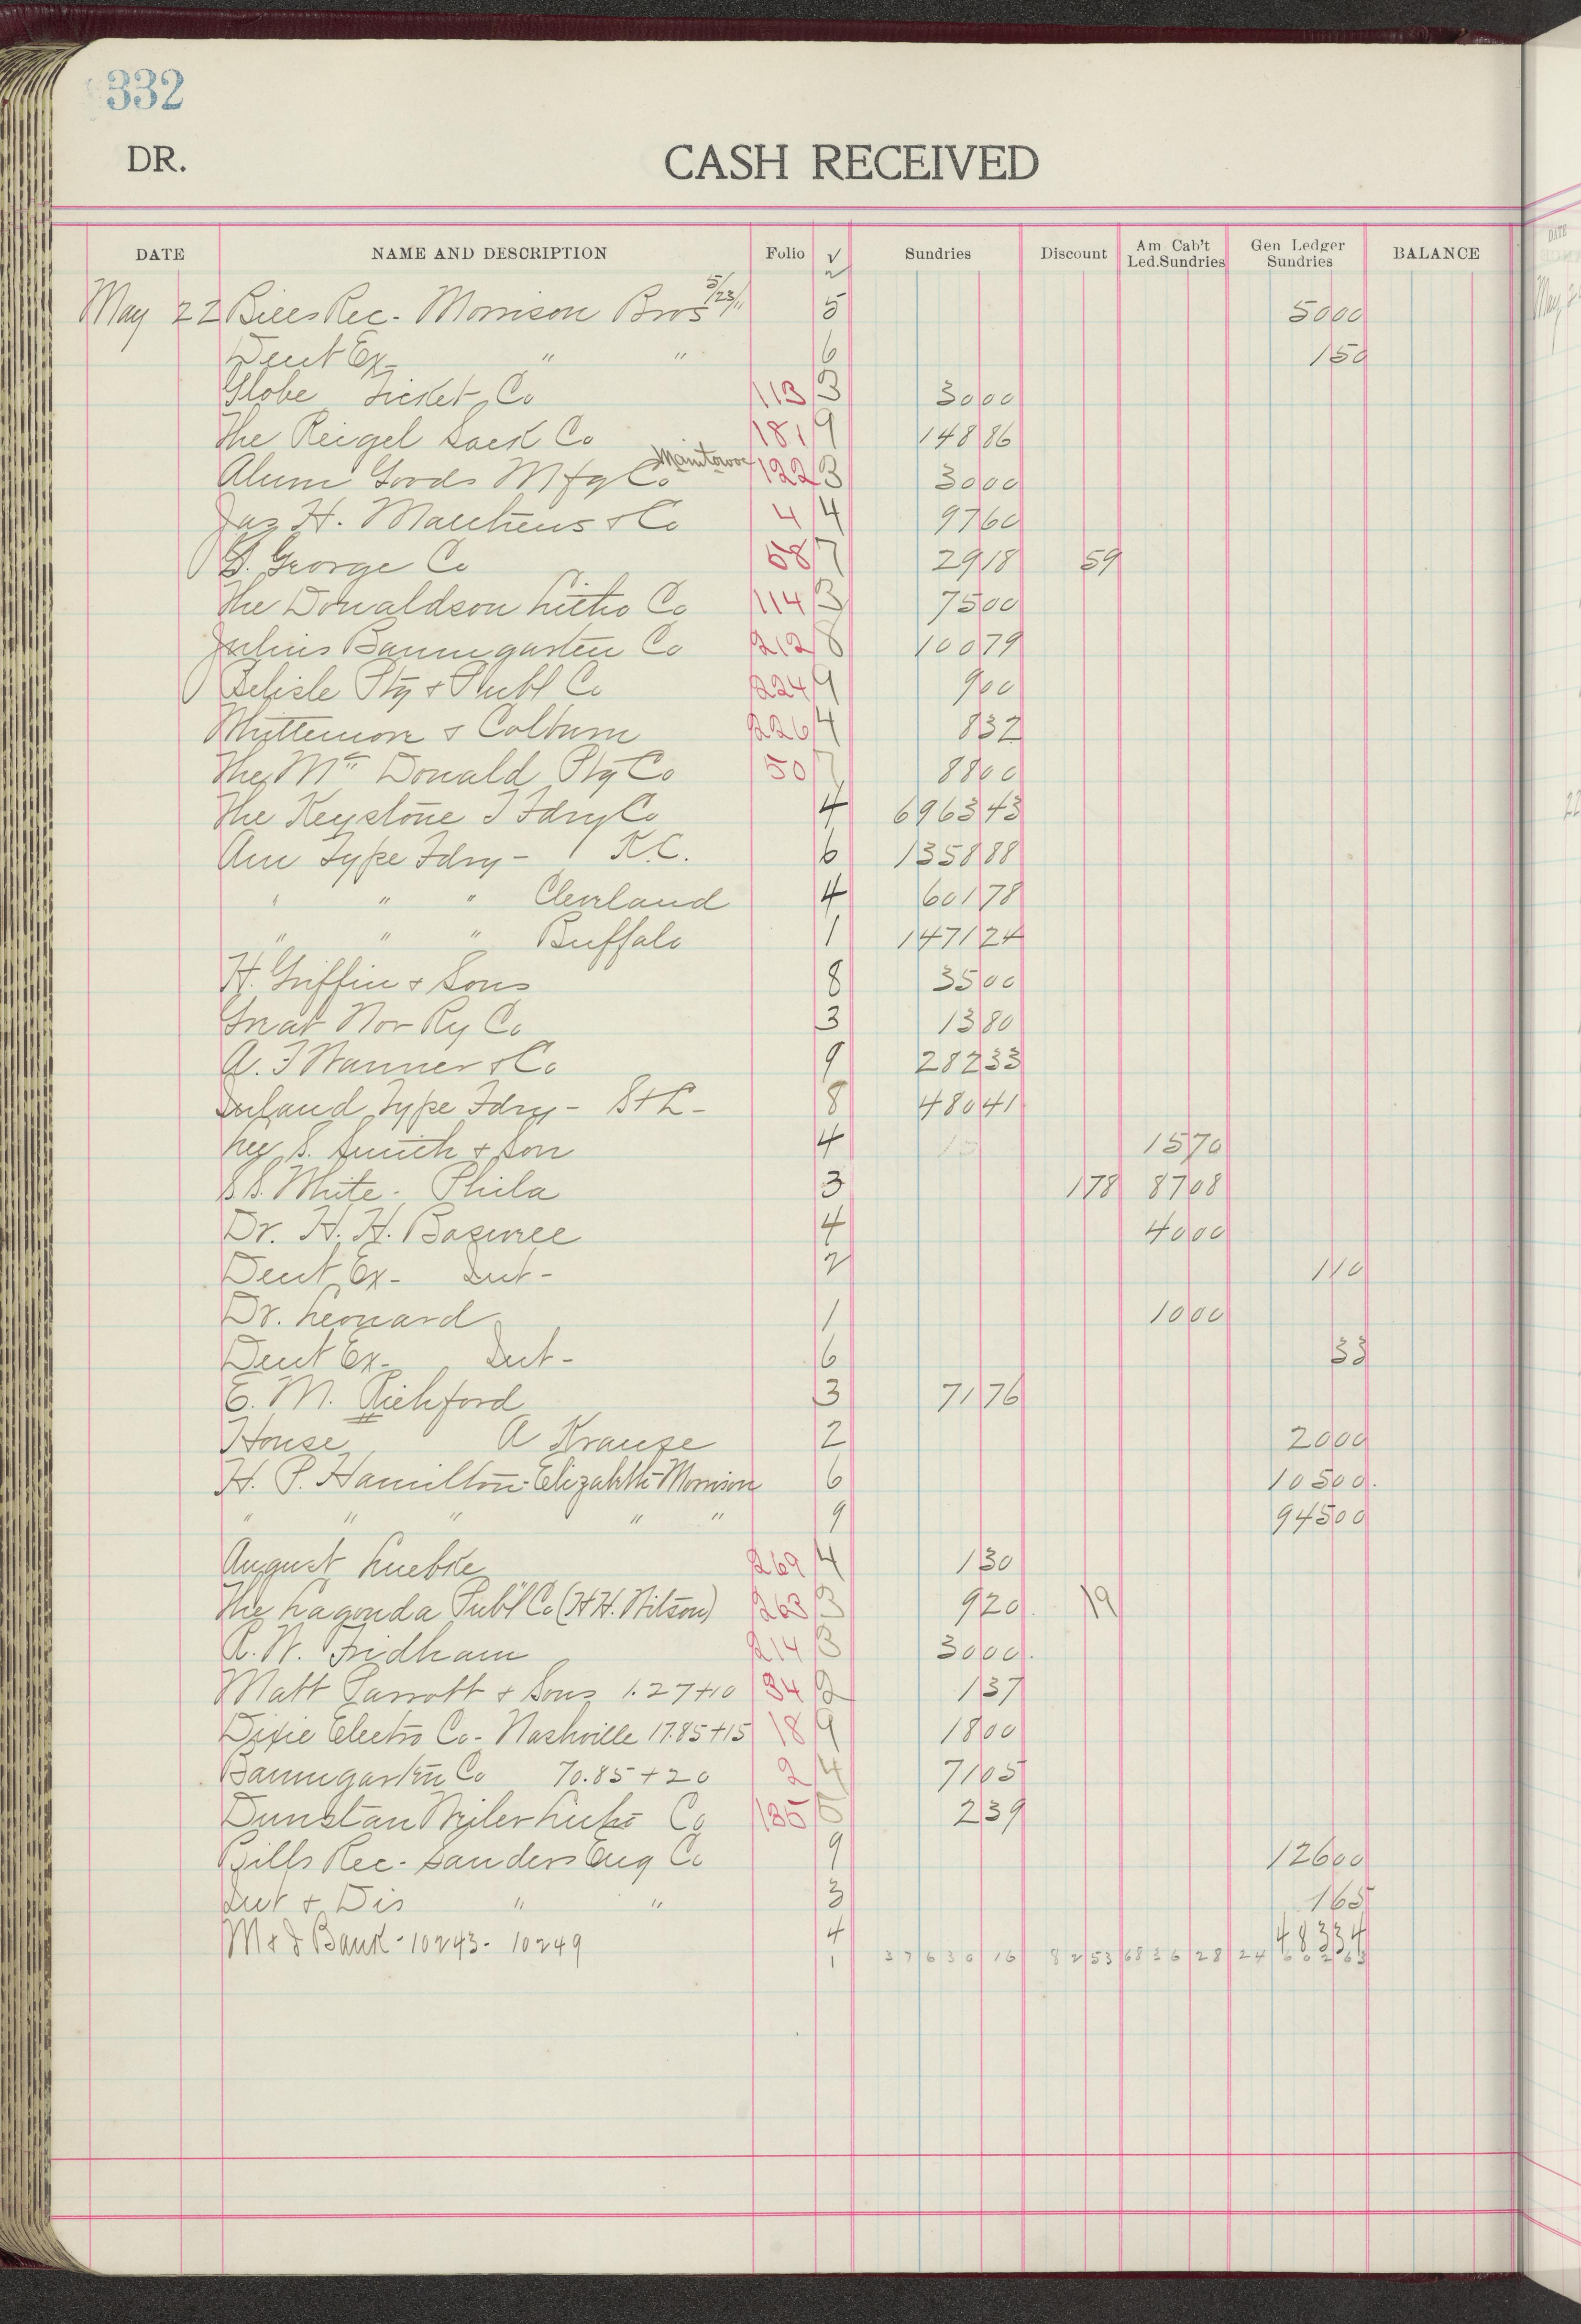 332
DR. CASH RECEIVED
DATE NAME AND DESCRIPTION Folio √ Sundries Discount Am Cab't Led.Sundries Gen Ledger Sundries BALANCE
2
May 22 Bills Rec - Morrison Bros 5/23/11 5 50 00
Dent Ex - " " 6 1 50
Globe Ticket Co 113 3 30 00
The Reigel Sack Co 181 9 148 86
Alum Goods Mfg Co Manitowoc 122 3 30 00
Jas H. Matthews & Co 4 4 97 60
G. George Co 58 7 29 18 59
The Donaldson Litho Co 114 3 75 00
Julius Baumgarten Co 212 8 100 79
Belisle Ptg & Publ Co 224 9 9 00
Whittemore & Colburn 226 4 8 32
The Mc Donald Ptg Co 50 7 88 00
The Keystone T Fdry Co 4 6963 43
Am Type Fdry - K.C. 6 1358 88
" " " Cleveland 4 601 78
" " " Buffalo 1 1471 24
H. Griffin & Sons 8 35 00
Great Nor Ry Co 3 13 80
A. F Wanner & Co 9 282 33
Inland Type Fdry - St L - 8 480 41
Lee S. Smith & Son 4 15 70
S.S. White - Phila 3 1 78 87 08
Dr. H. H. 4 40 00
Dent Ex - Int - 2 1 10
Dr. Leonard 1 10 00
Dent Ex - Int - 6 33
E. M. Richford 3 71 76
House A Krause 2 20 00
H. P. Hamilton - Elizabeth Morrison 6 105 00
" " " " " 9 945 00
August Luebke 269 4 1 30
The Lagonda Publ Co (H H. Wilson) 263 3 9 20 19
R. W. Tridham 214 3 30 00
Matt Parrott & Sons 1.27+10 34 2 1 37
Dixie Electro Co - Nashville 17.85+15 18 9 18 00
Baumgarten Co 70.85+20 2 4 71 05
Dunstan Co 135 5 2 39
Bills Rec - Sanders Eng Co 9 126 00
Int & Dis " " 3 1 65
M & I Bank - 10243 - 10249 4 483 34
1 37630 16 82 53 6836 28 24 60 2 63